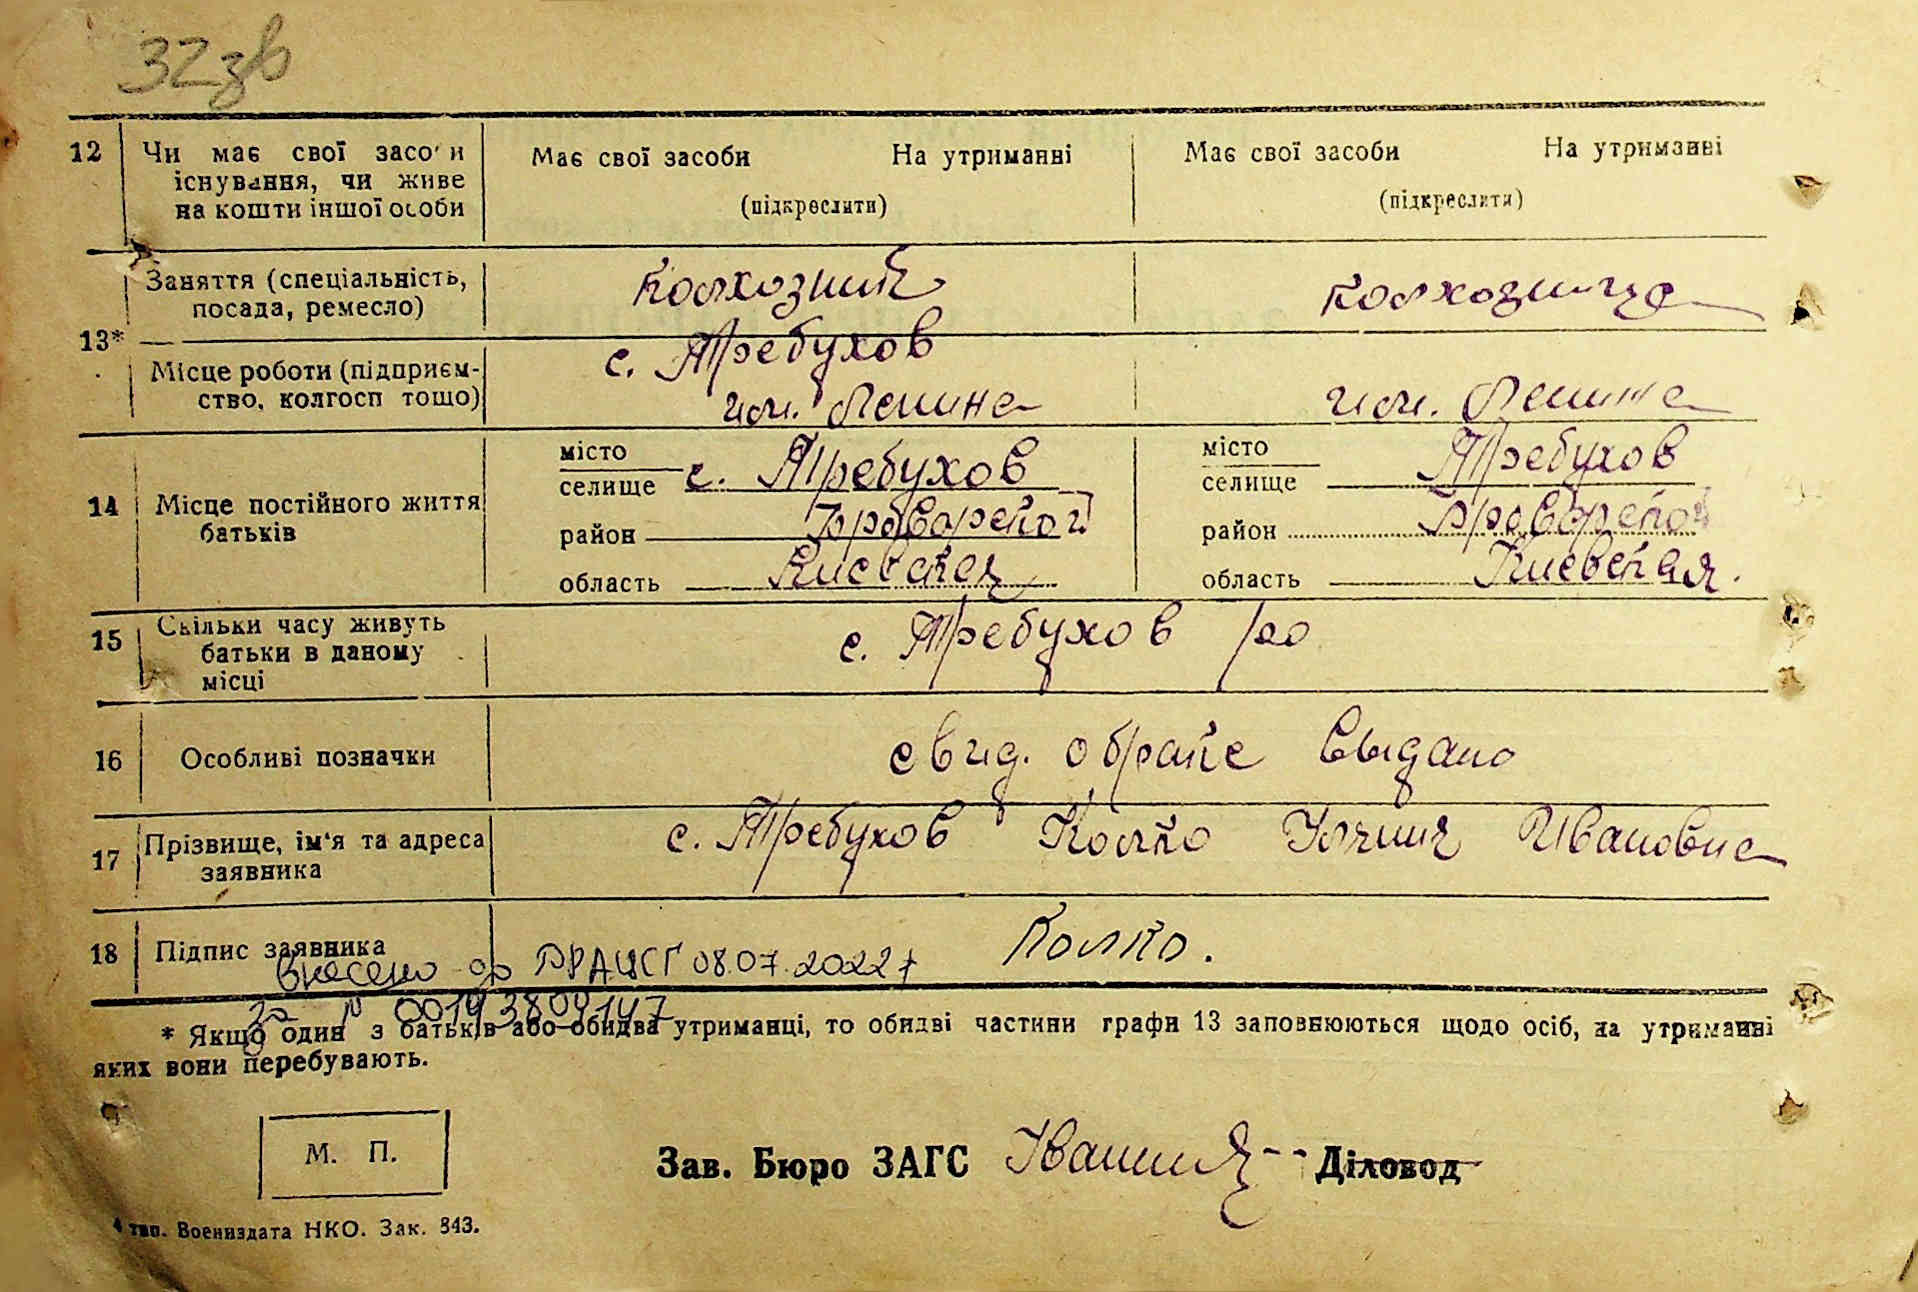 32зв
12 Чи має свої засоби існування, чи живе на кошти іншої особи
Має свої засоби На утриманні
(підкреслити)
Має свої засоби На утриманні
(підкреслити)
13*
Заняття (спеціальність, посада, ремесло)
колхозник
колхозница
Місце роботи (підприємство, колгосп тощо)
с. Требухов
им. Ленина
им. Ленина
14 Місце постійного життя батьків
місто
селище с. Требухов
район Броварской
область Киевская
місто
селище Требухов
район Броварской
область Киевская.
15 Скільки часу живуть батьки в даному місці
с. Требухов
16 Особливі позначки
свид. о браке выдано
17 Прізвище, ім'я та адреса заявника
с. Требухов Колко Ивановна
18 Підпис заявника
Колко.
внесено до ДРАЦСГ 08.07.2022
за № 00193809147
* Якщо один з батьків або обидва утриманці, то обидві частини графи 13 заповнюються щодо осіб, на утриманні
яких вони перебувають.
М. П.
Зав. Бюро ЗАГС Діловод
4 тип. Воениздата НКО. Зак. 843.